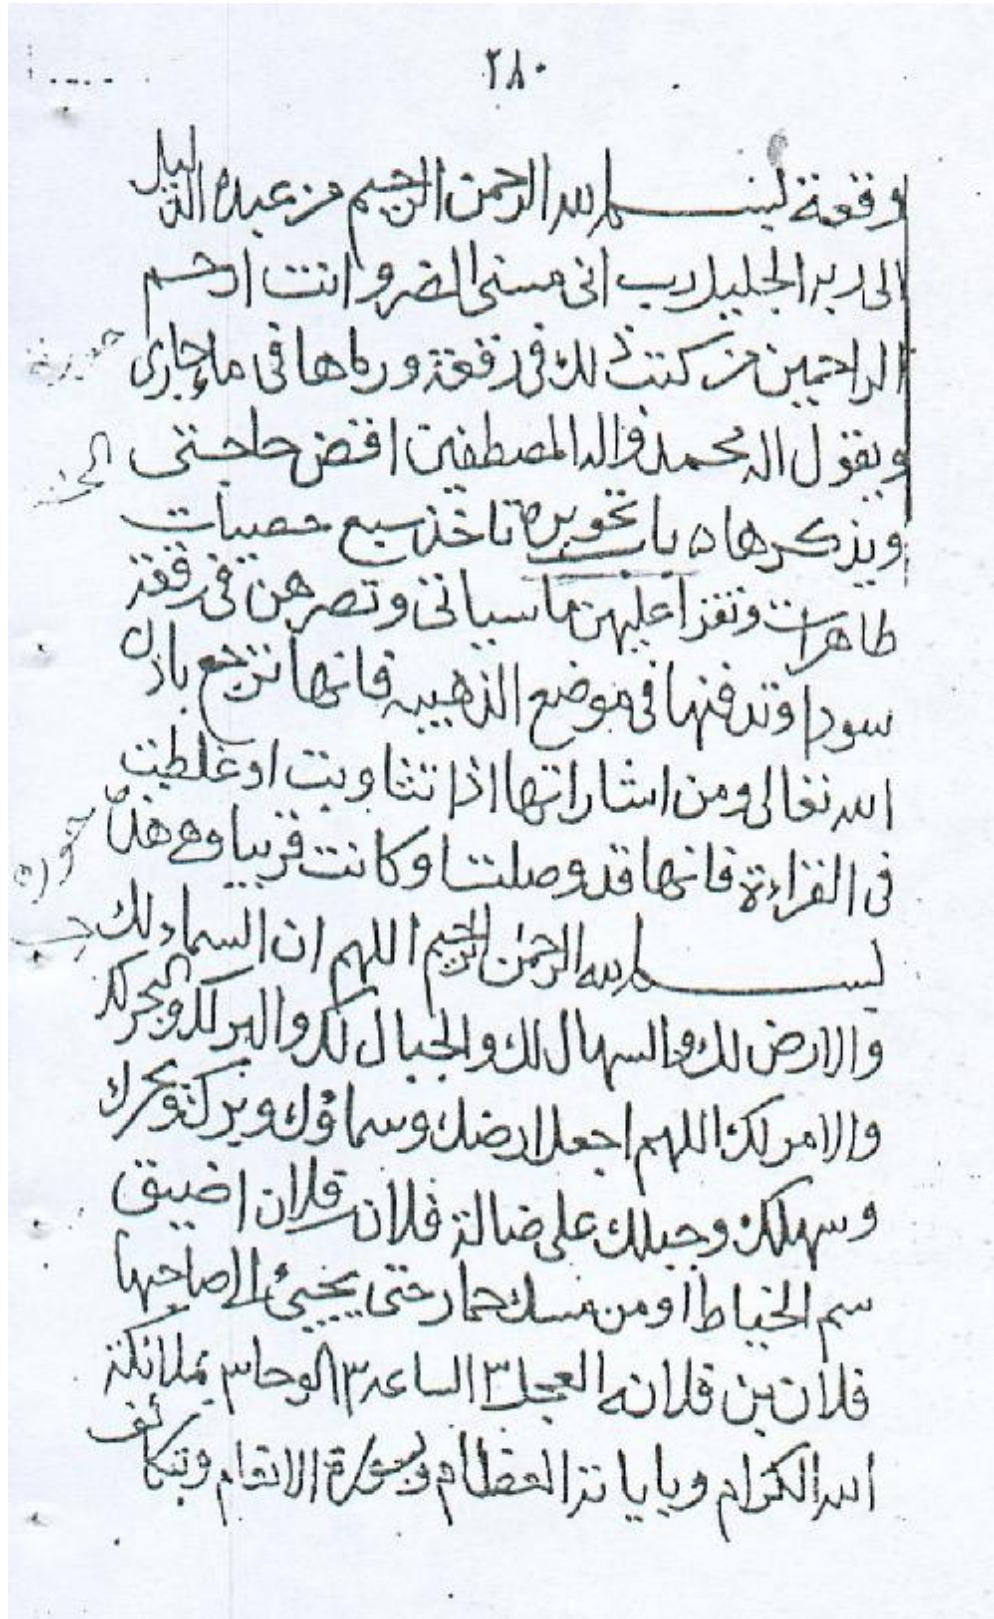 ٢٨٠
وقعة بسم الله الرحمن الرحيم من عبده الذليل
الى ربه الجليل رب انى مسنى الضر وانت ارحم
الراحمين من كتب ذلك فى رقعة ورماها فى ماء جارى
ويقول اله محمد واله المصطفين اقض حاجتى
ويذكرها ه باب تحويره تاخذ سبع حصيات
طاهرات وتقرا عليهن ما سياتى وتصرهن فى رقعة
سودا وتدفنها فى موضع الذهيبه فانها ترجع باذن
الله تعالى ومن اشاراتها اذا تثاوبت او غلطت
فى القراءة فانها قد وصلت او كانت قريبا وهى هذا
بسم الله الرحمن الرحيم اللهم ان السماء لك
والارض لك والسهال لك والجبال لك والبر لك والبحر لك
والامر لك اللهم اجعل ارضك وسماؤك وبرك وبحرك
وسهلك وجبلك على ضالة فلان فلان اضيق
سم الخياط او من مسك حمار حتى يجيئ الى صاحبها
فلان بن فلانه العجل ٣ الساعه ٣ الوحا ٣ بملائكة
الله الكرام وباياته العظام وبسورة الانعام وبتكاتف